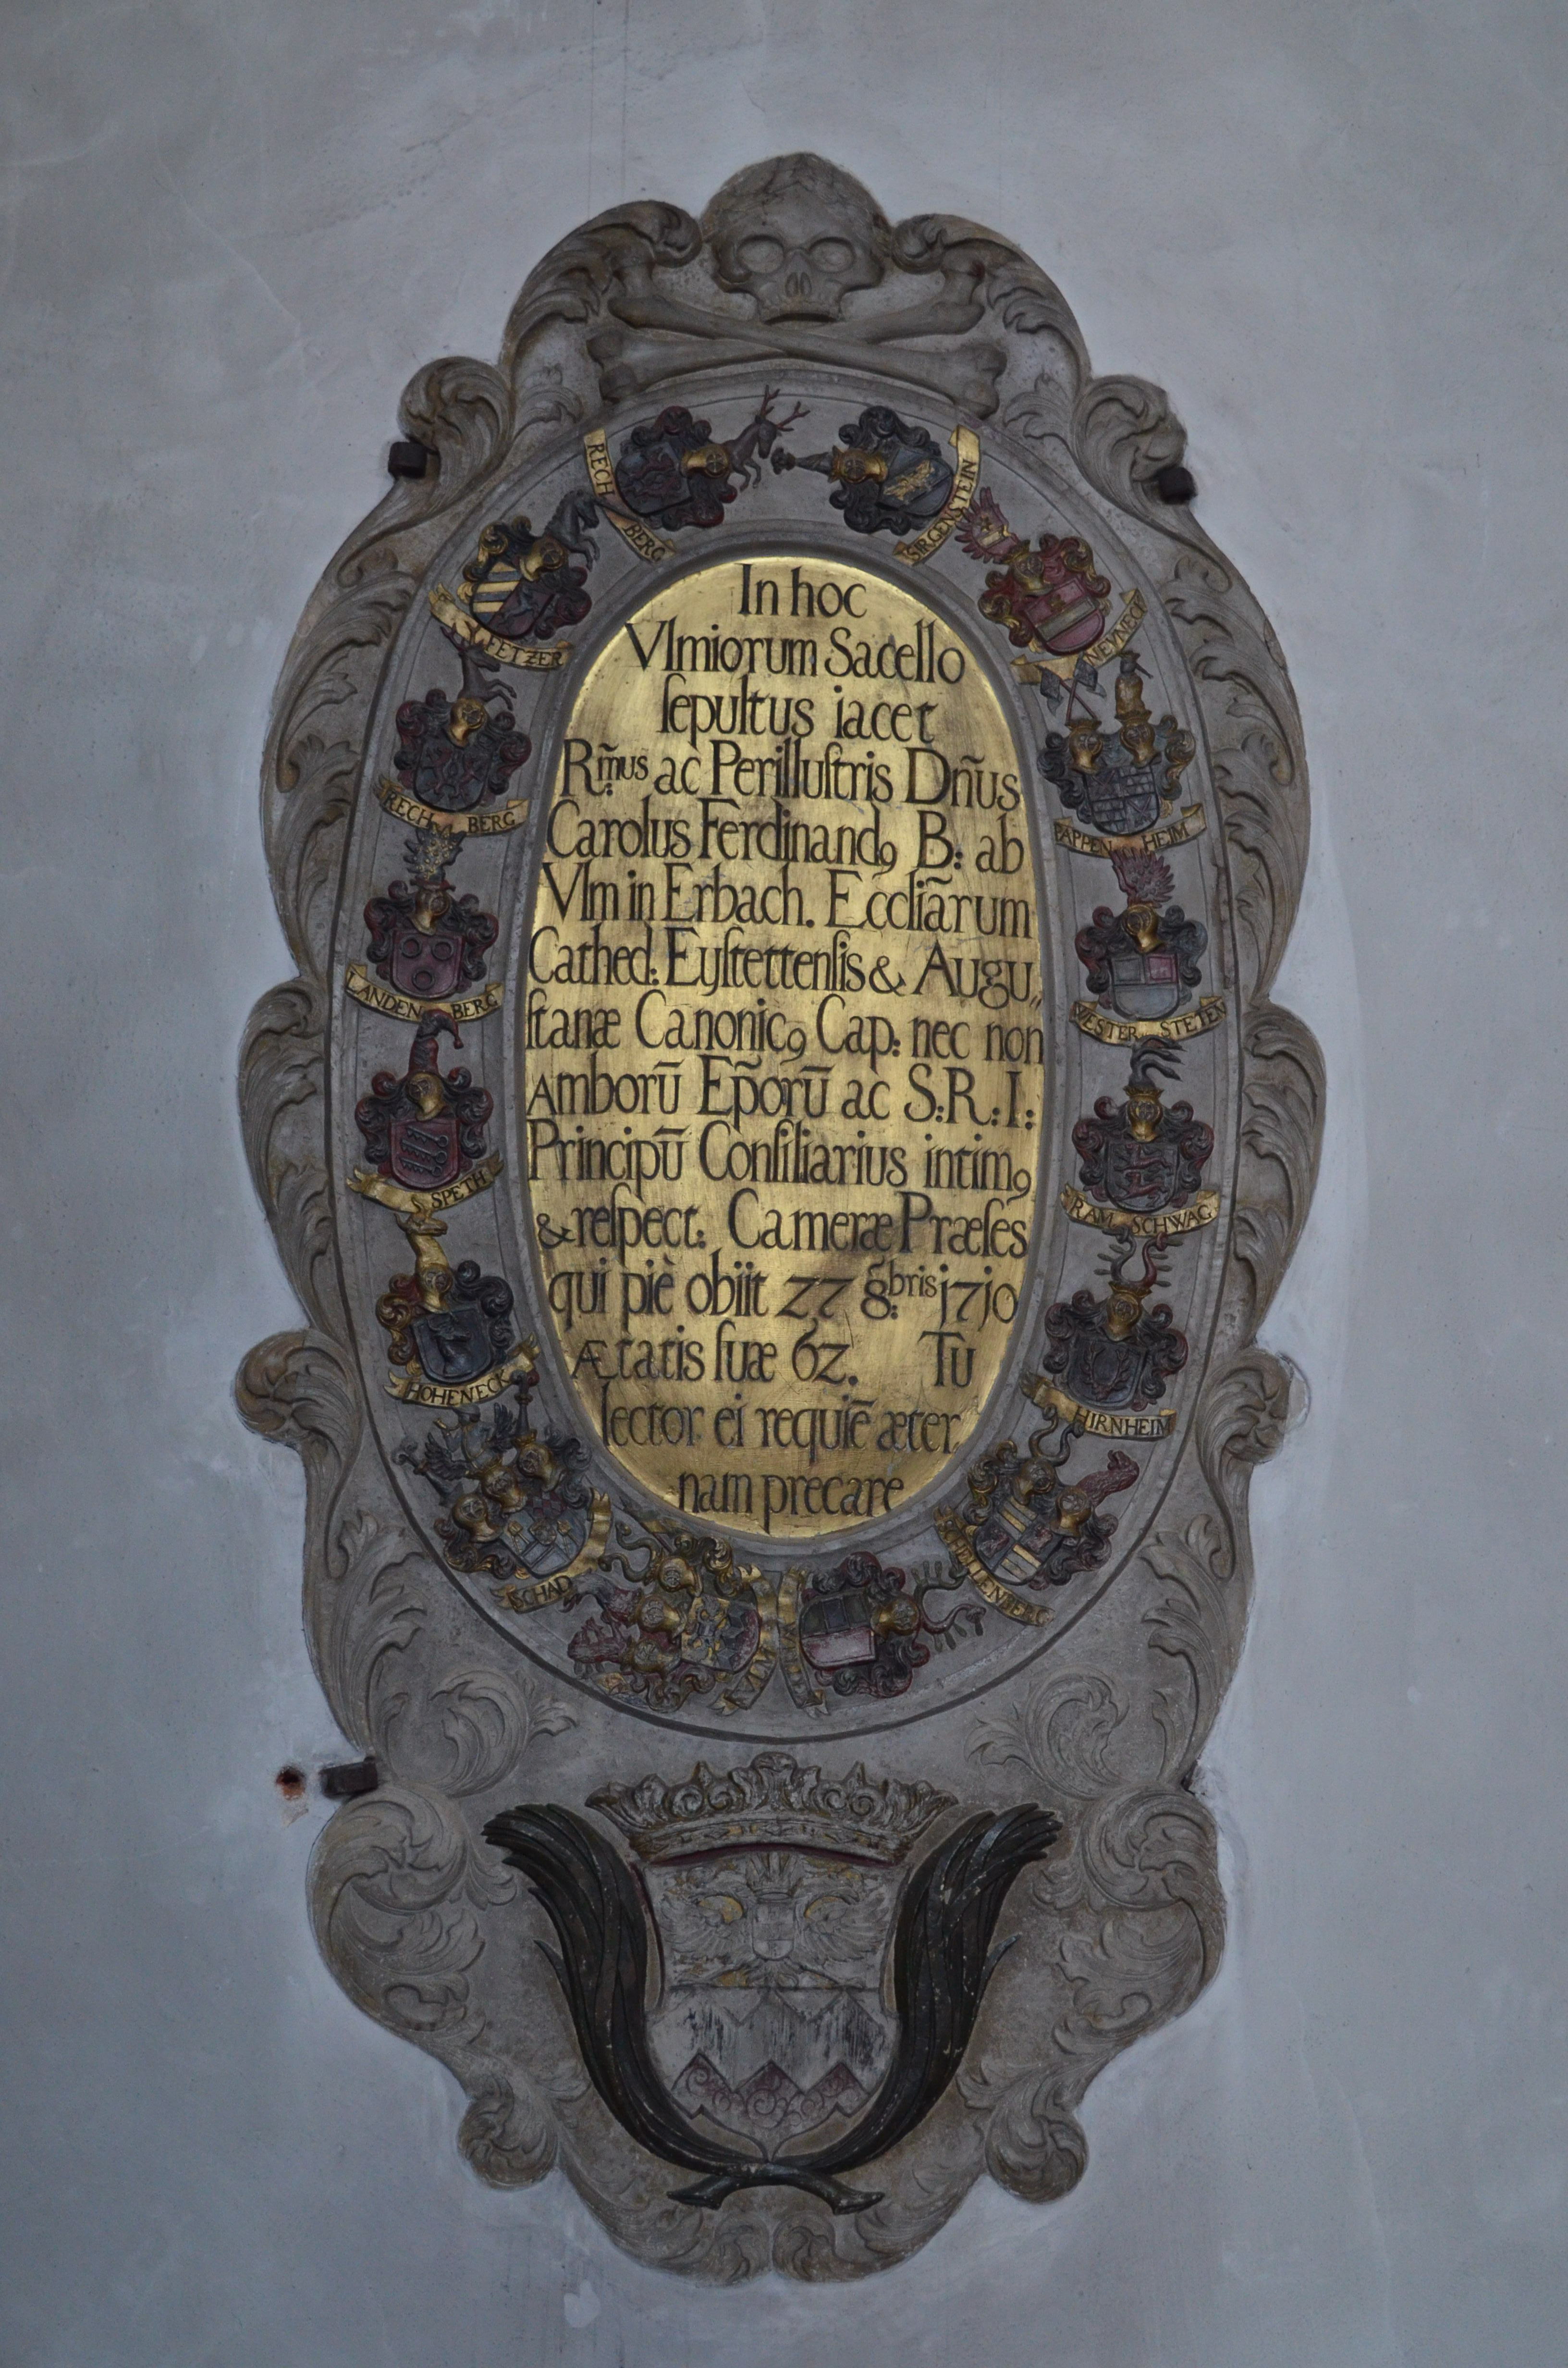 In hoc
Vlmiorum Sacello
ſepultus iacet
Rm̃us ac Perilluſtris Dñus
Carolus Ferdinandꝯ B: ab
Vlm in Erbach. Eccliãrum
Cathed: Eyſtettenſis & Augu„
ſtanæ Canonicꝯ Cap: nec non
Amborū Ep̃orū ac S:R:I:
Principū Conſiliarius intimꝯ
& reſpect: Cameræ Præſes
qui piè obiit 27 8:bris 1710
Ætatis ſuæ 62. Tu
lector ei requiē æter
nam precare
RECH BERG
SIRGENSTEIN
FETZER
NEVNECK
RECH BERG
PAPPEN HEIM
LANDEN BERG
WESTER STETEN
SPETH
RAM SCHWAG
HOHENECK
HIRNHEIM
SCHAD
SCHELLENBERG